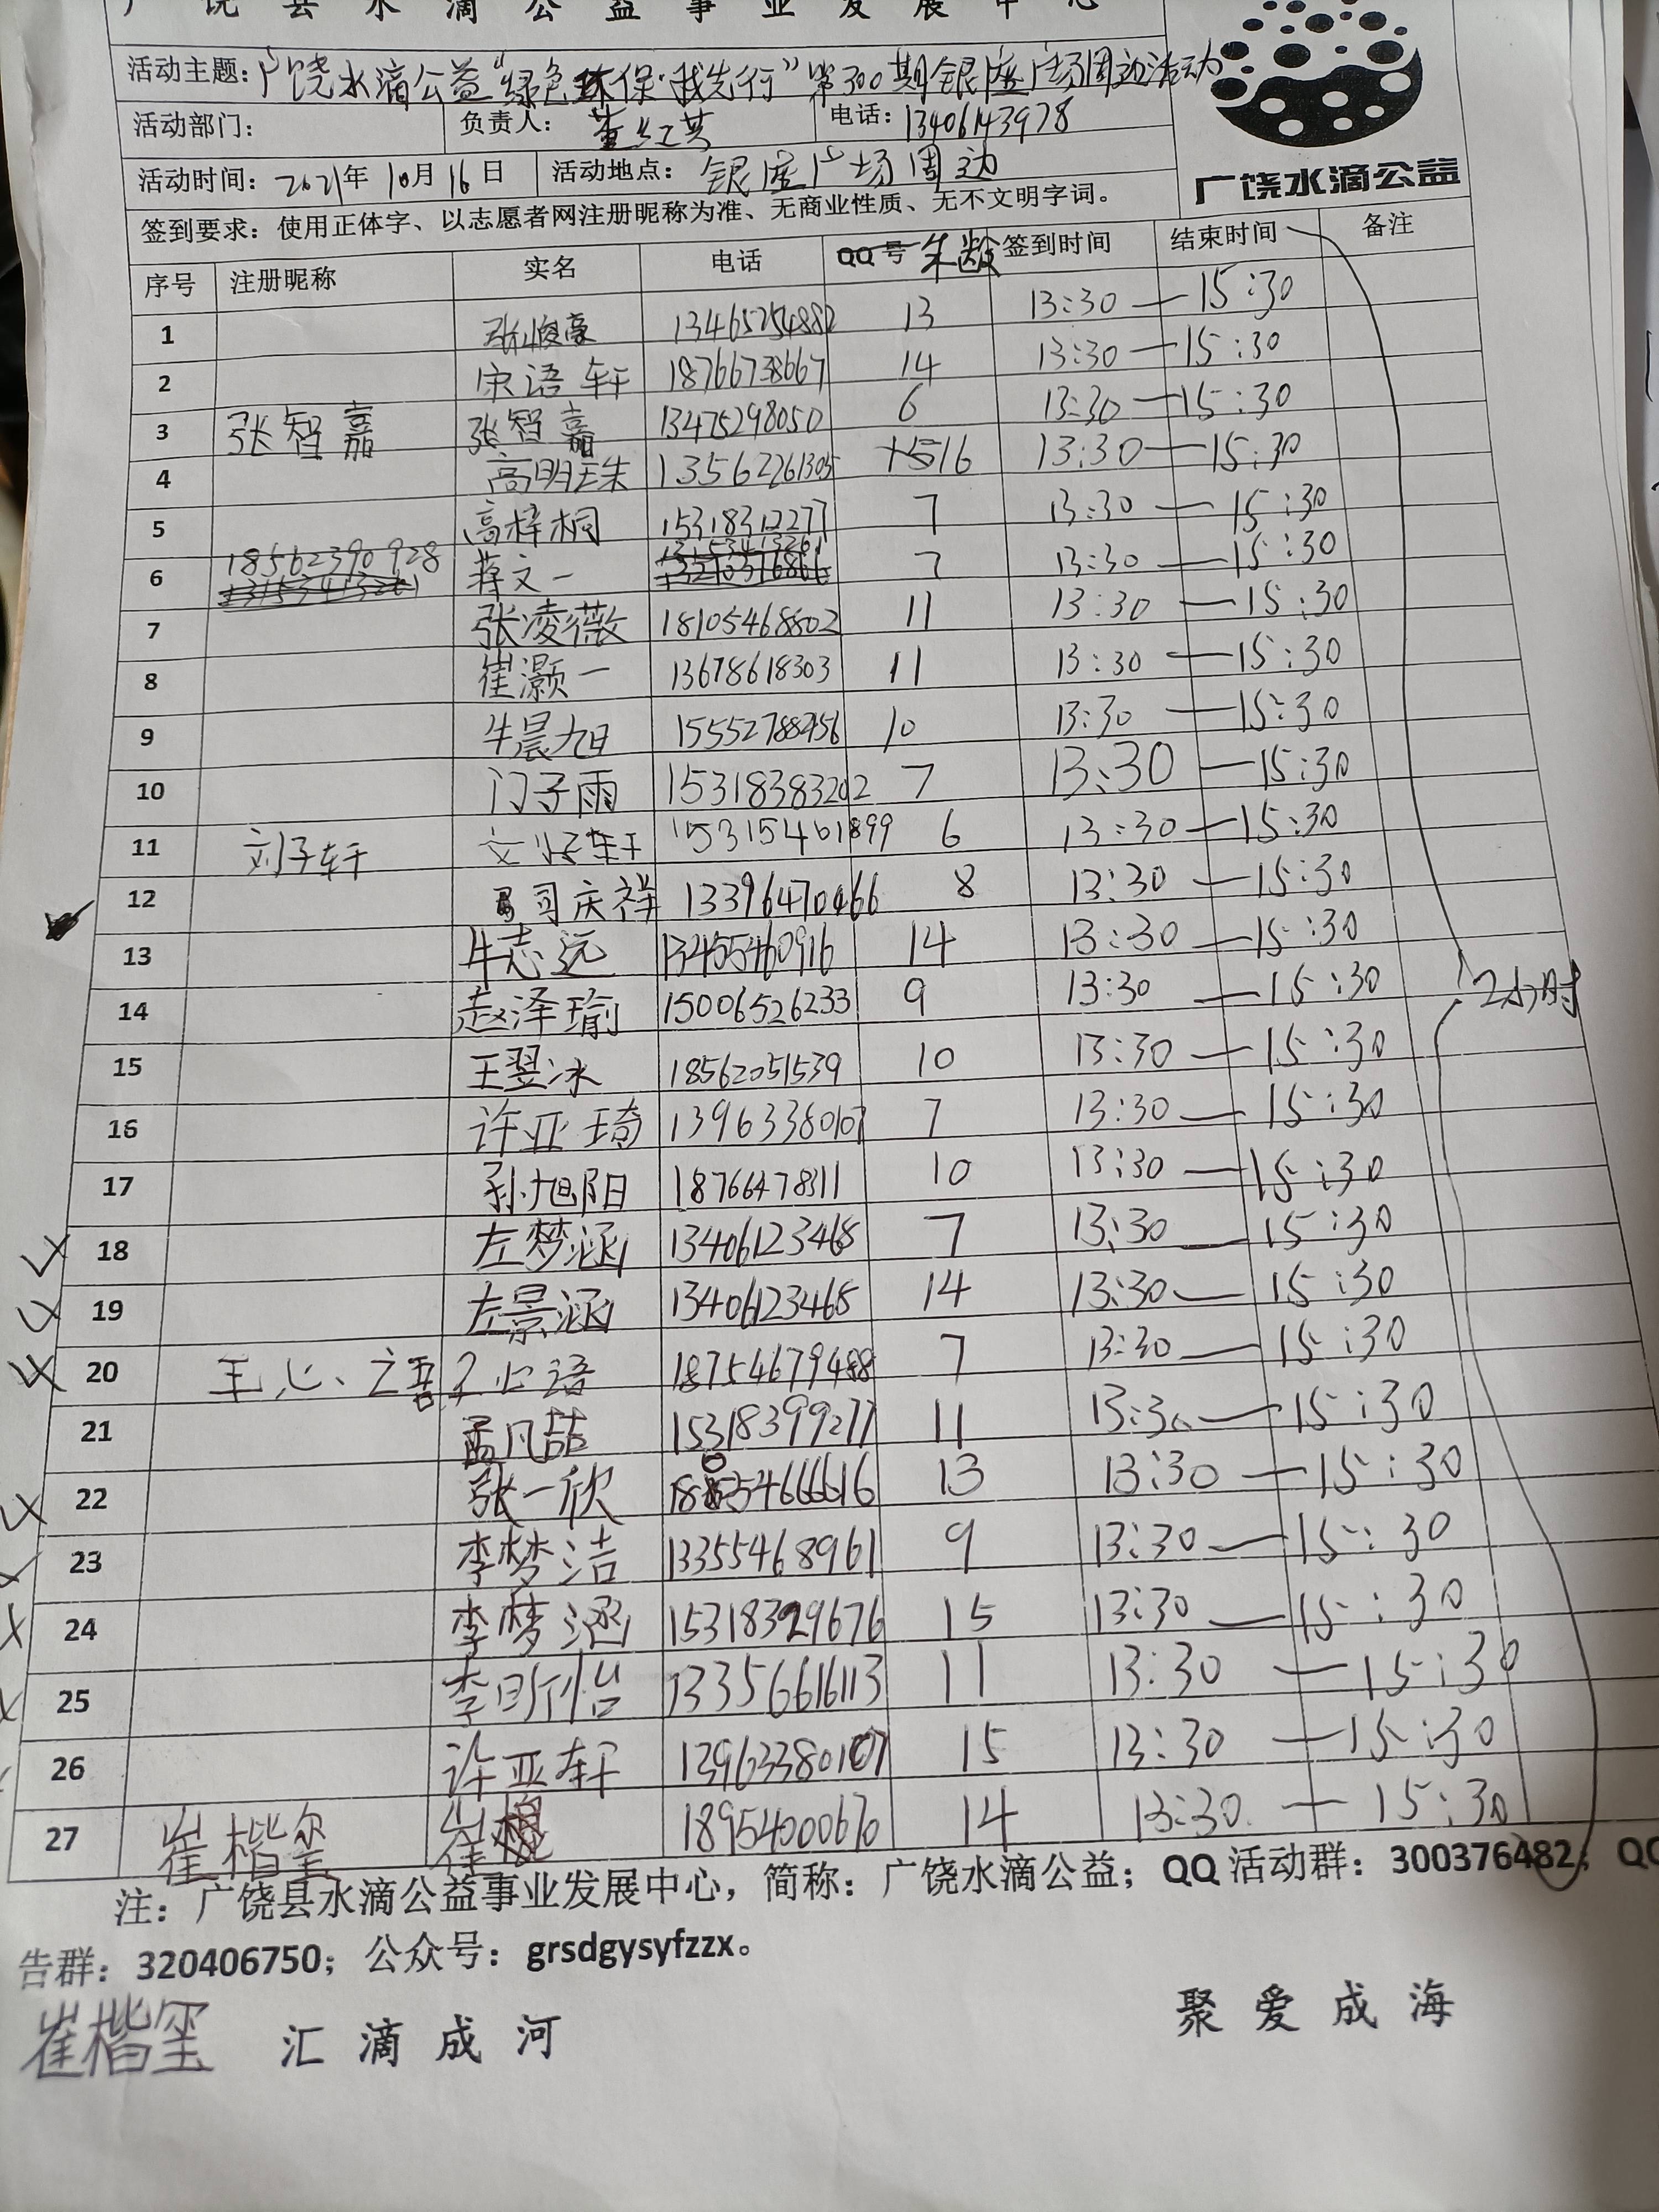 广饶县水滴公益事业发展中心
活动主题：广饶水滴公益“绿色环保·我先行”第300期银座广场周边活动
活动部门： 负责人：董红英 电话：13406143978
活动时间：2021年10月16日 活动地点：银座广场周边
广饶水滴公益
签到要求：使用正体字、以志愿者网注册昵称为准、无商业性质、无不文明字词。
序号 注册昵称 实名 电话 QQ号 年龄 签到时间 结束时间 备注
1 张峻豪 13465254882 13 13:30—15:30
2 宋语轩 18766738667 14 13:30—15:30
3 张智嘉 张智嘉 13475298050 6 13:30—15:30
4 高明珠 13562261305 15 16 13:30—15:30
5 高梓桐 15318312277 7 13:30—15:30
6 18562390928 蒋文一 7 13:30—15:30
7 张凌薇 18105468802 11 13:30—15:30
8 崔灏一 13678618303 11 13:30—15:30
9 牛晨旭 15552788456 10 13:30—15:30
10 门子雨 15318383202 7 13:30—15:30
11 刘子轩 刘子轩 15315461899 6 13:30—15:30
12 司庆祥 13396470466 8 13:30—15:30
13 牛志远 13455460916 14 13:30—15:30
14 赵泽瑜 15006526233 9 13:30—15:30
2小时
15 王翌冰 18562051539 10 13:30—15:30
16 许亚琦 13963380107 7 13:30—15:30
17 孙旭阳 18766478311 10 13:30—15:30
18 左梦涵 13406123468 7 13:30—15:30
19 左景涵 13406123468 14 13:30—15:30
20 王心语 王心语 18754679488 7 13:30—15:30
21 孟凡喆 15318399277 11 13:30—15:30
22 张一欣 13 13:30—15:30
23 李梦洁 13355468961 9 13:30—15:30
24 李梦涵 15318329676 15 13:30—15:30
25 李昕怡 13356616113 11 13:30—15:30
26 许亚轩 13963380107 15 13:30—15:30
27 崔楷玺 崔楷 18954000670 14 13:30—15:30
注：广饶县水滴公益事业发展中心，简称：广饶水滴公益；QQ活动群：300376482；QQ
告群：320406750；公众号：grsdgysyfzzx。
崔楷玺 汇滴成河 聚爱成海